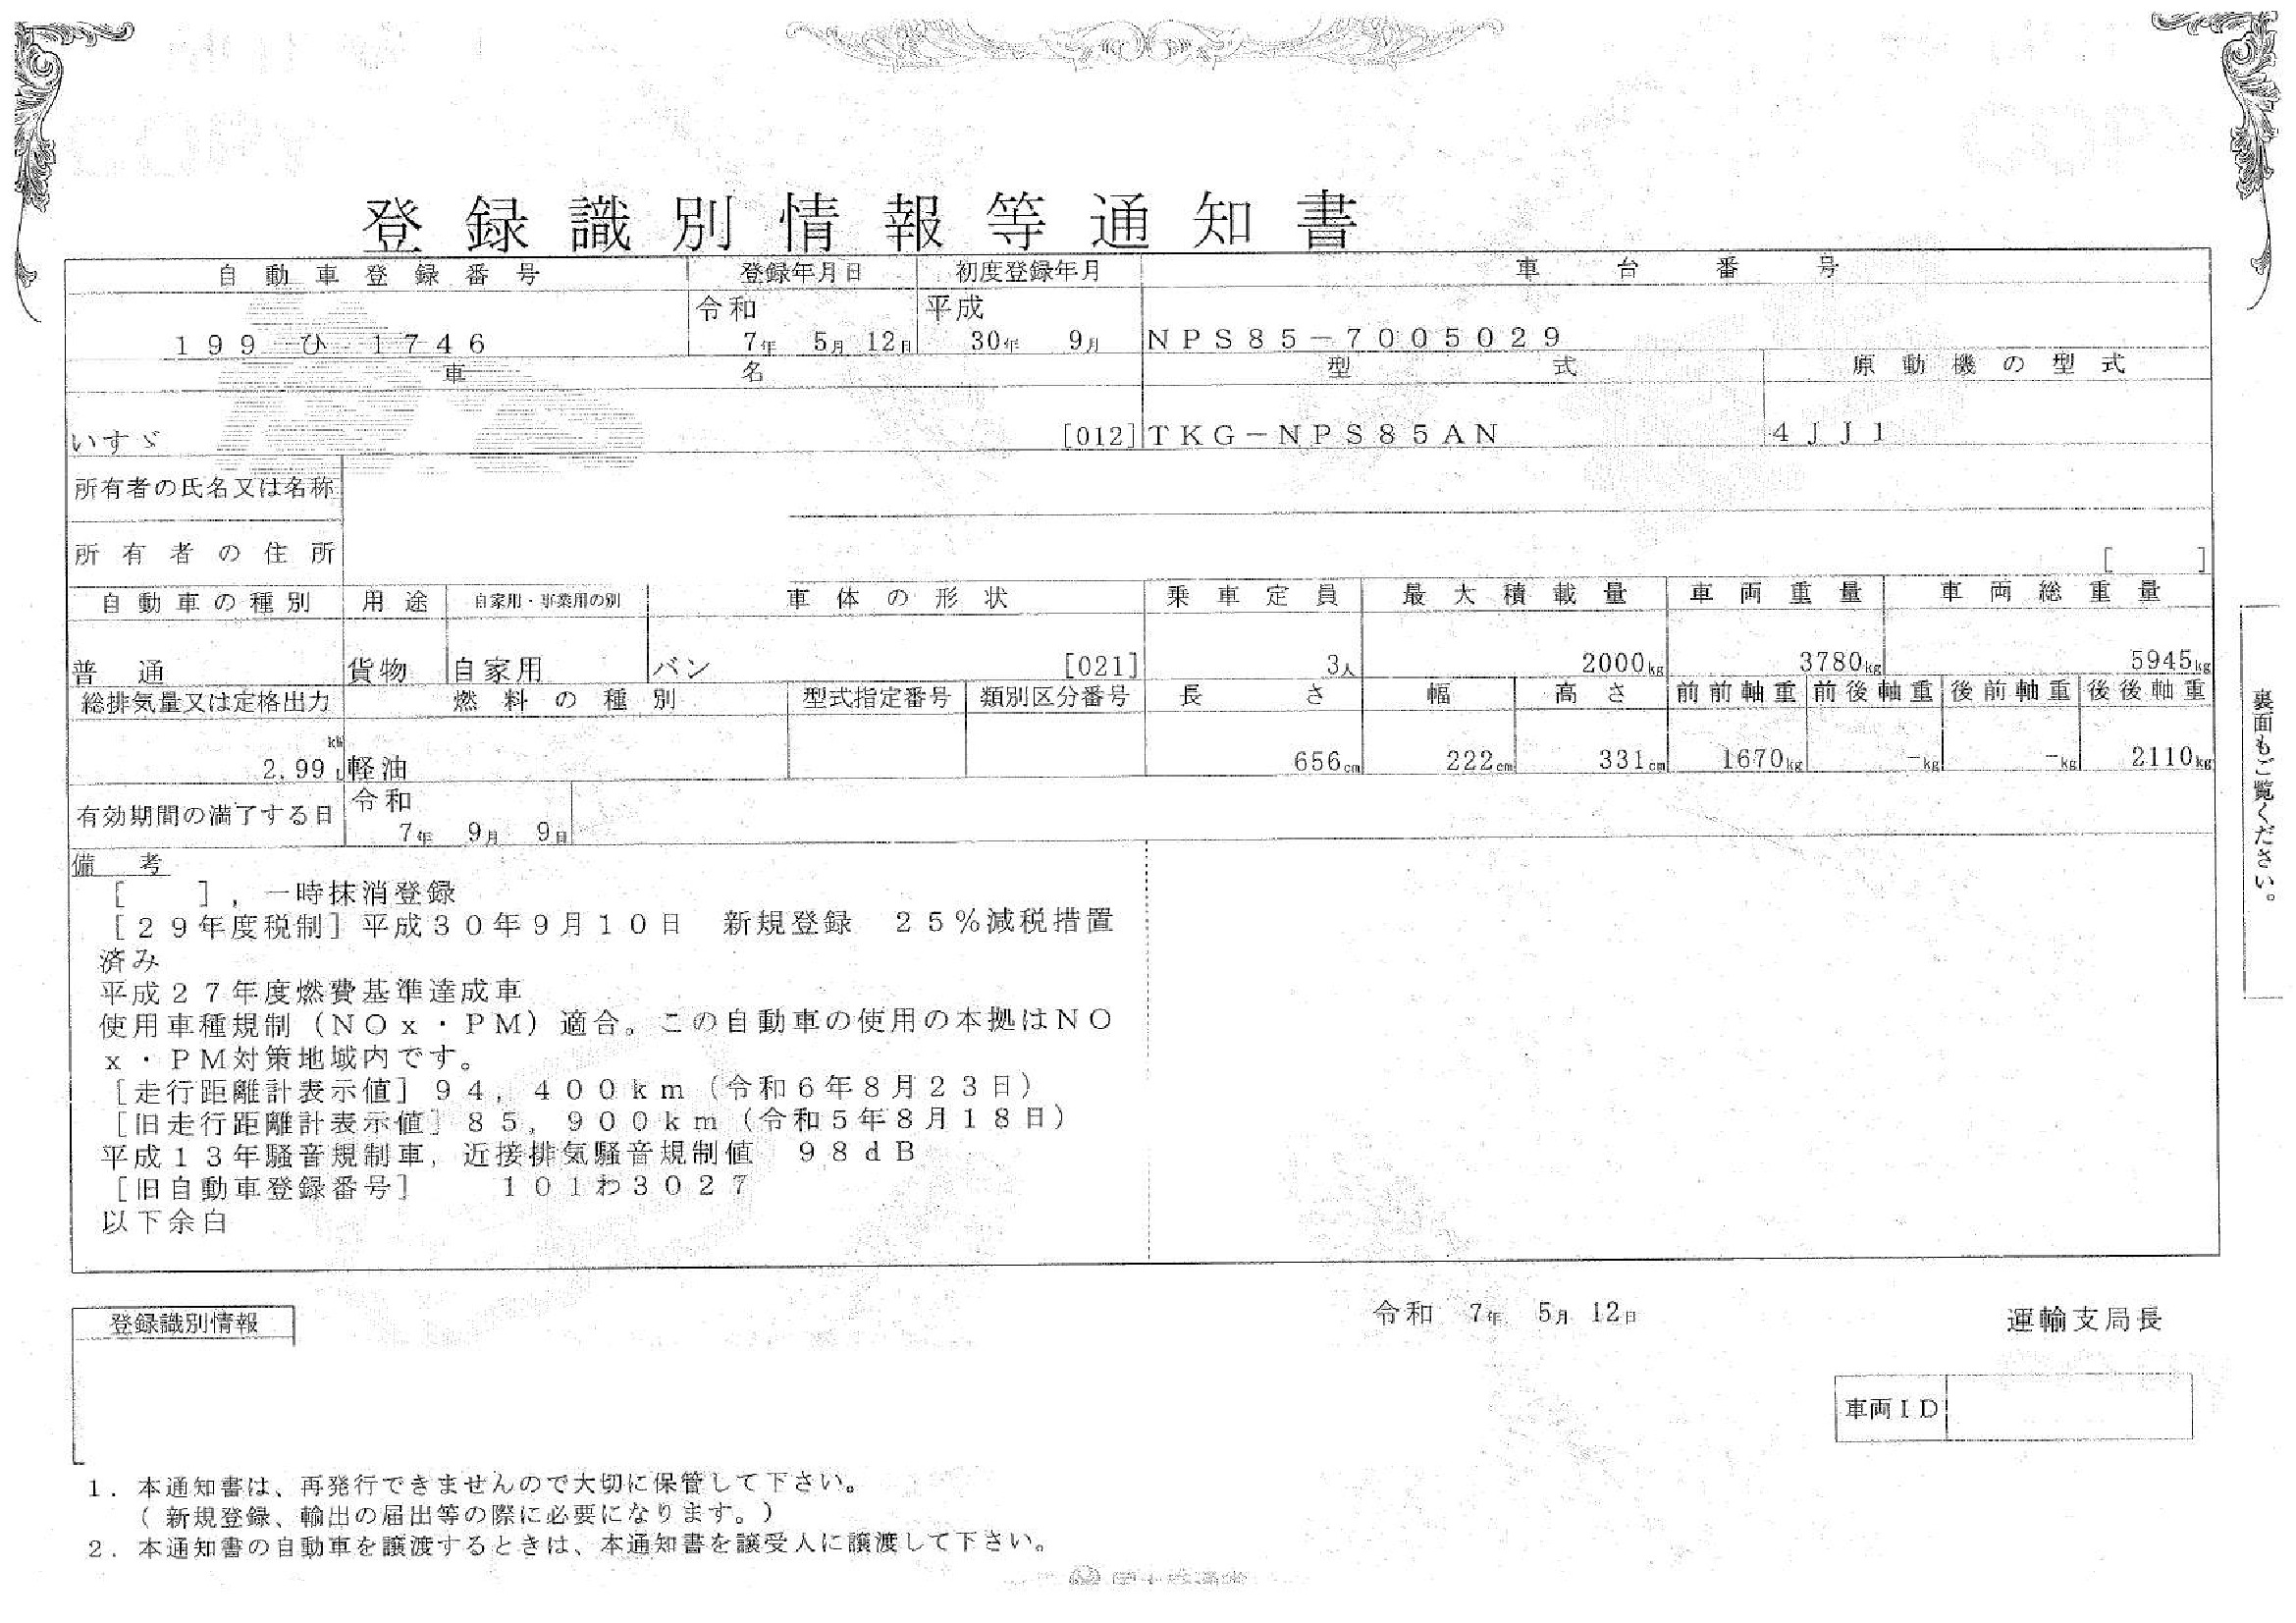 登録識別情報等通知書
自動車登録番号 登録年月日 初度登録年月 車台番号
令和 平成
199 ひ 1746 7年 5月 12日 30年 9月 NPS85-7005029
車名 型式 原動機の型式
いすゞ [012] TKG-NPS85AN 4JJ1
所有者の氏名又は名称
所有者の住所 [ ]
自動車の種別 用途 自家用・事業用の別 車体の形状 乗車定員 最大積載量 車両重量 車両総重量
普通 貨物 自家用 バン [021] 3人 2000kg 3780kg 5945kg
総排気量又は定格出力 燃料の種別 型式指定番号 類別区分番号 長さ 幅 高さ 前前軸重 前後軸重 後前軸重 後後軸重
kW
2.99 L 軽油 656cm 222cm 331cm 1670kg -kg -kg 2110kg
有効期間の満了する日 令和
7年 9月 9日
備考
[ ],一時抹消登録
[29年度税制]平成30年9月10日 新規登録 25%減税措置
済み
平成27年度燃費基準達成車
使用車種規制(NOx・PM)適合。この自動車の使用の本拠はNO
x・PM対策地域内です。
[走行距離計表示値]94,400km(令和6年8月23日)
[旧走行距離計表示値]85,900km(令和5年8月18日)
平成13年騒音規制車,近接排気騒音規制値 98dB
[旧自動車登録番号] 101わ3027
以下余白
裏面もご覧ください。
令和 7年 5月 12日 運輸支局長
登録識別情報
車両ID
1.本通知書は、再発行できませんので大切に保管して下さい。
(新規登録、輸出の届出等の際に必要になります。)
2.本通知書の自動車を譲渡するときは、本通知書を譲受人に譲渡して下さい。